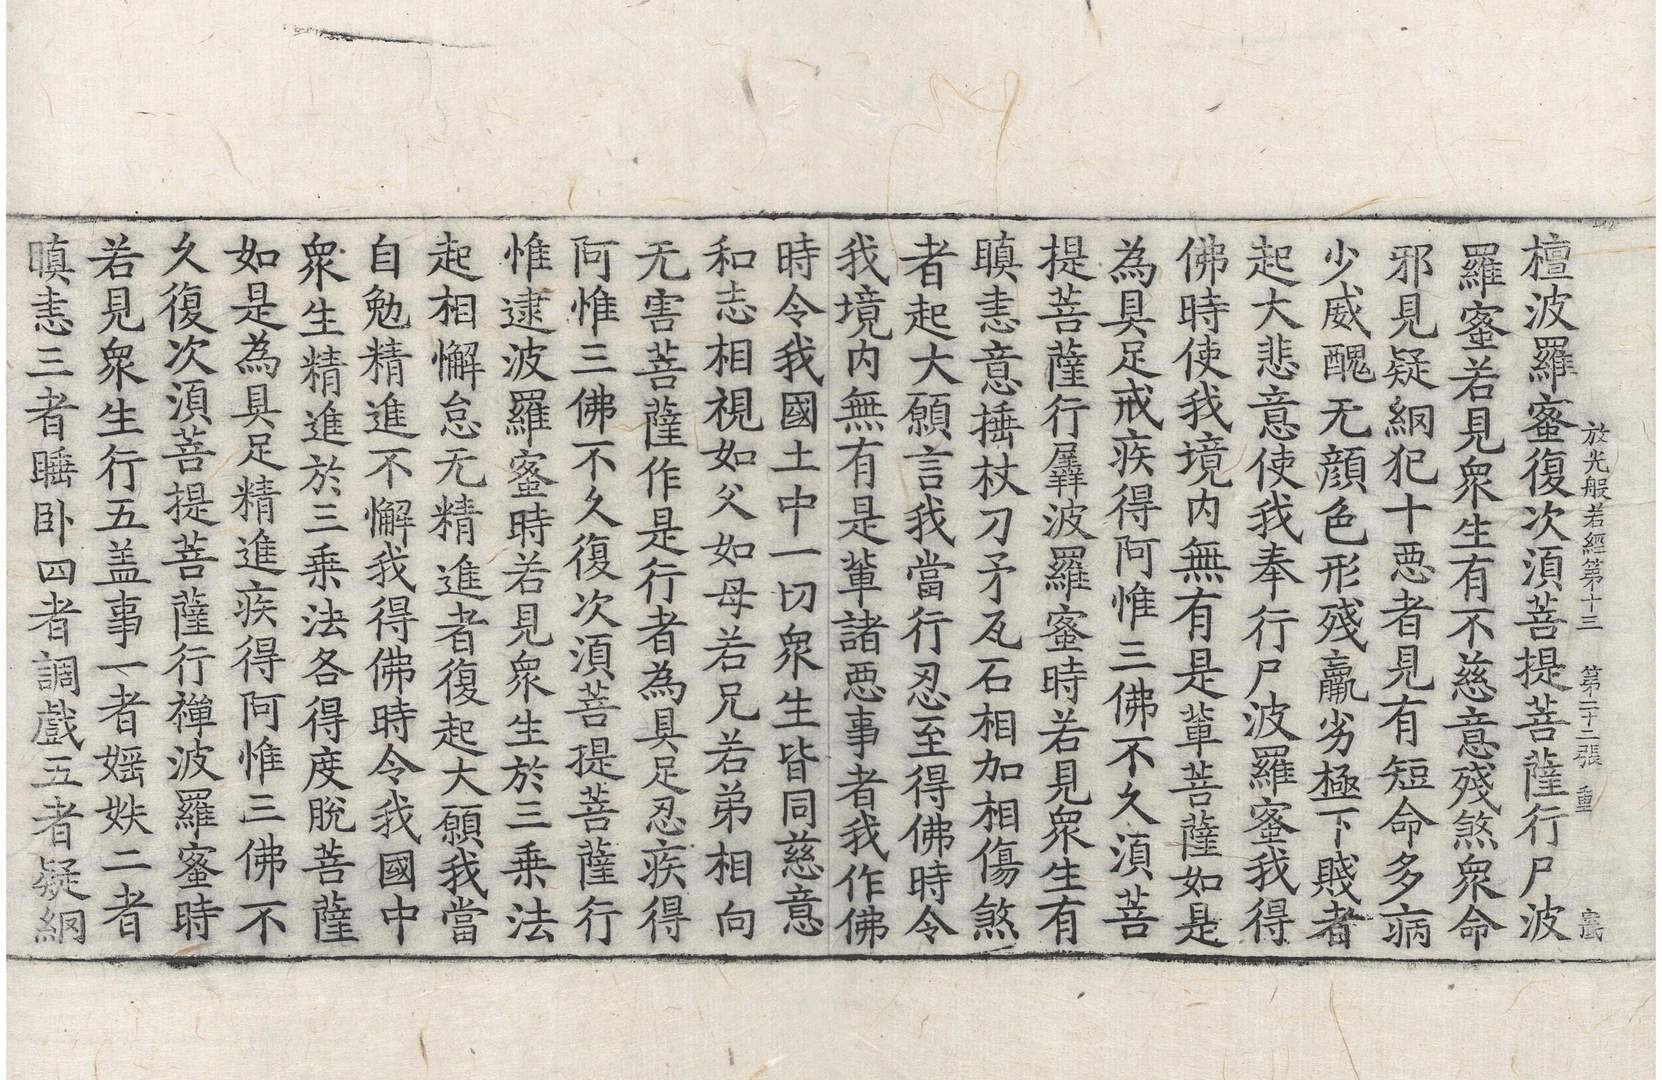 放光般若經第十三 第二十二張 重
檀波羅蜜復次湏菩提菩薩行尸波
羅蜜若見衆生有不慈意殘煞衆命
邪見疑網犯十悪者見有短命多病
少威醜无顔色形殘羸劣極下賤者
起大悲意使我奉行尸波羅蜜我得
佛時使我境内無有是輩菩薩如是
為具足戒疾得阿惟三佛不久湏菩
提菩薩行羼波羅蜜時若見衆生有
瞋恚意捶杖刀矛瓦石相加相傷煞
者起大願言我當行忍至得佛時令
我境内無有是輩諸悪事者我作佛
時令我國土中一切衆生皆同慈意
和志相視如父如母若兄若弟相向
无害菩薩作是行者為具足忍疾得
阿惟三佛不久復次湏菩提菩薩行
惟逮波羅蜜時若見衆生於三乗法
起相懈怠无精進者復起大願我當
自勉精進不懈我得佛時令我國中
衆生精進於三乗法各得度脫菩薩
如是為具足精進疾得阿惟三佛不
久復次湏菩提菩薩行禅波羅蜜時
若見衆生行五盖事一者婬妷二者
瞋恚三者睡卧四者調戲五者疑網